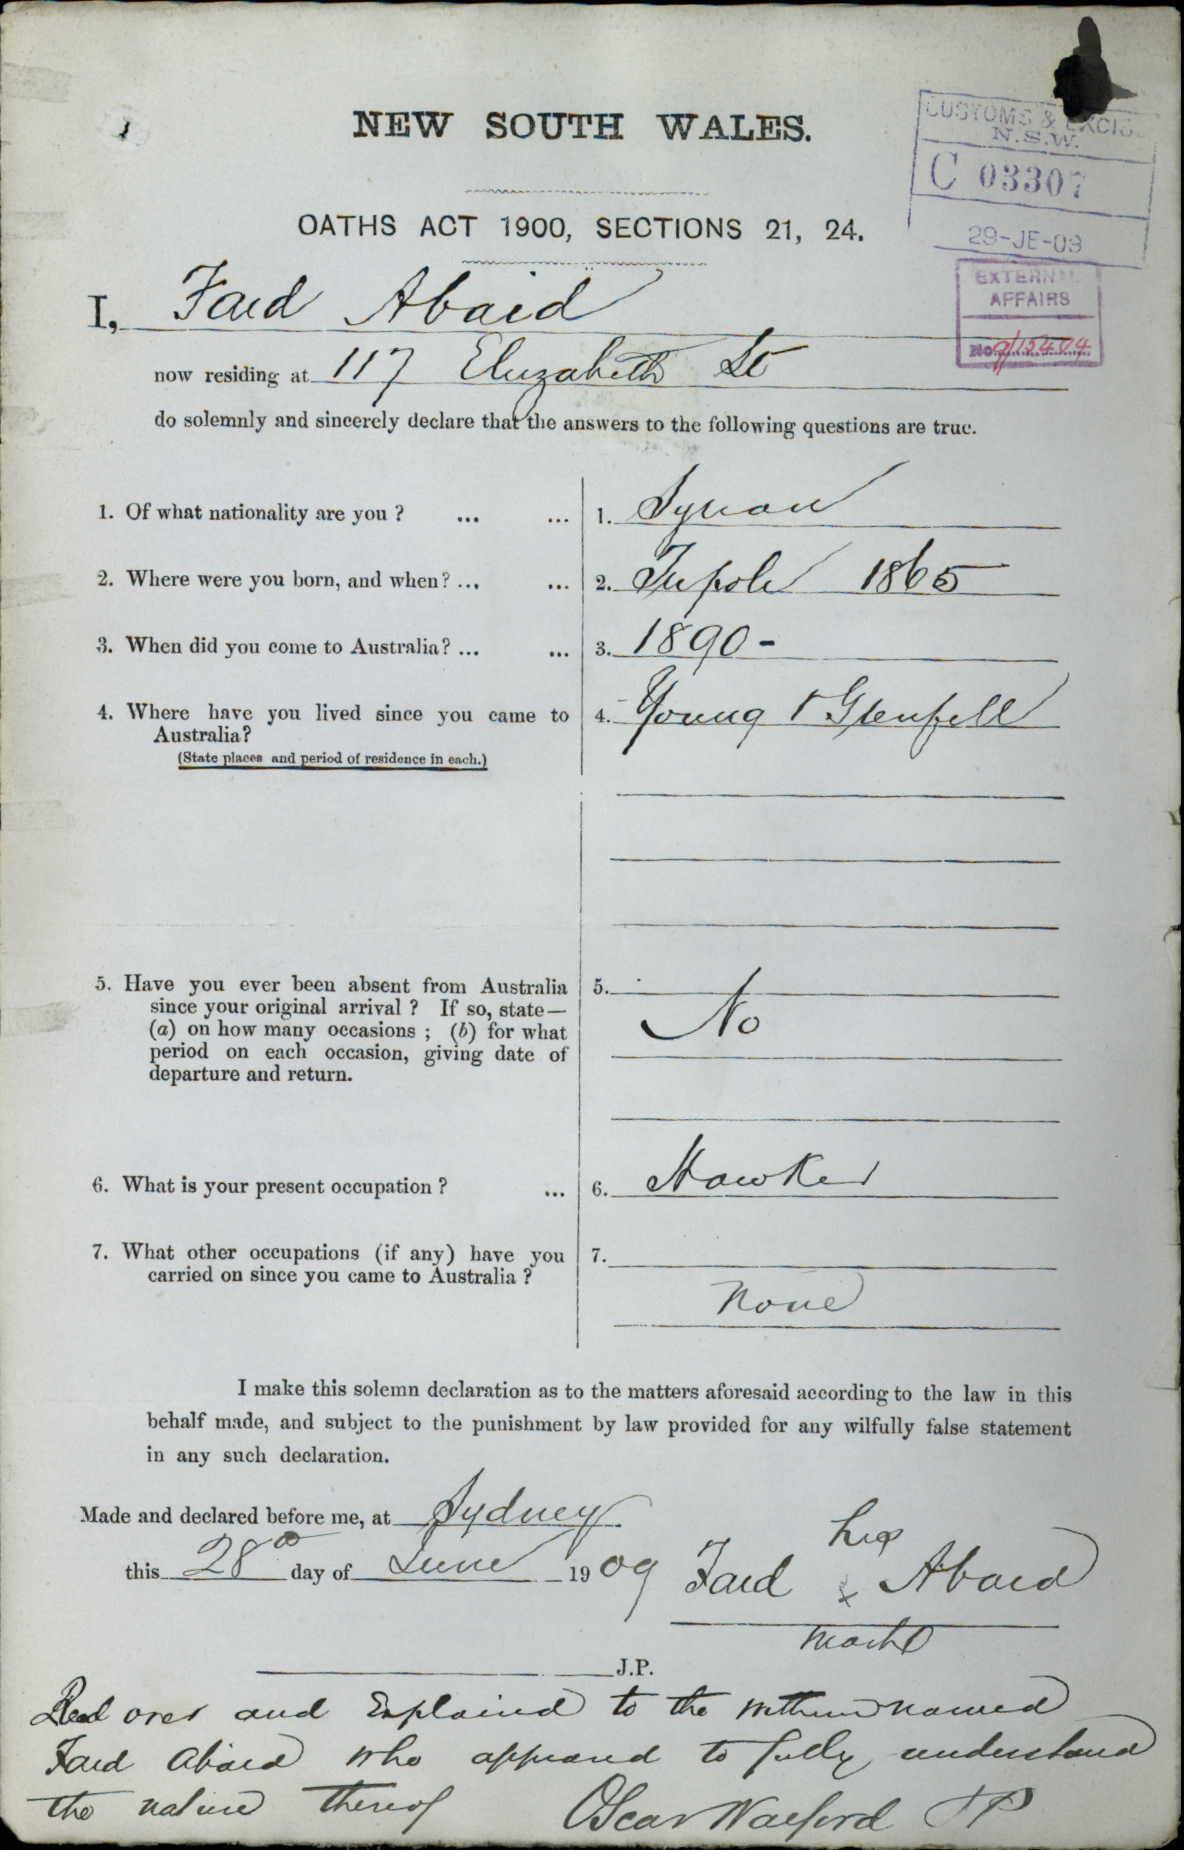 NEW SOUTH WALES.
CUSTOMS & EXCISE
N.S.W.
C 03307
29-JE-09
OATHS ACT 1900, SECTIONS 21, 24.
EXTERNAL
AFFAIRS
No. 9/15404
I, Faid Abaid
now residing at 117 Elizabeth St
do solemnly and sincerely declare that the answers to the following questions are true.
1. Of what nationality are you ? ... ... 1. Syrian
2. Where were you born, and when? ... ... 2. Tripoli 1865
3. When did you come to Australia? ... ... 3. 1890 -
4. Where have you lived since you came to 4. Young & Grenfell
Australia?
(State places and period of residence in each.)
5. Have you ever been absent from Australia 5.
since your original arrival ? If so, state—
(a) on how many occasions ; (b) for what No
period on each occasion, giving date of
departure and return.
6. What is your present occupation ? ... 6. Hawker
7. What other occupations (if any) have you 7.
carried on since you came to Australia ?
None
I make this solemn declaration as to the matters aforesaid according to the law in this
behalf made, and subject to the punishment by law provided for any wilfully false statement
in any such declaration.
Made and declared before me, at Sydney
his
this 28th day of June 1909 Faid x Abaid
mark
J.P.
Read over and Explained to the within named
Faid Abaid who appeared to fully understand
the nature thereof Oscar Walford JP